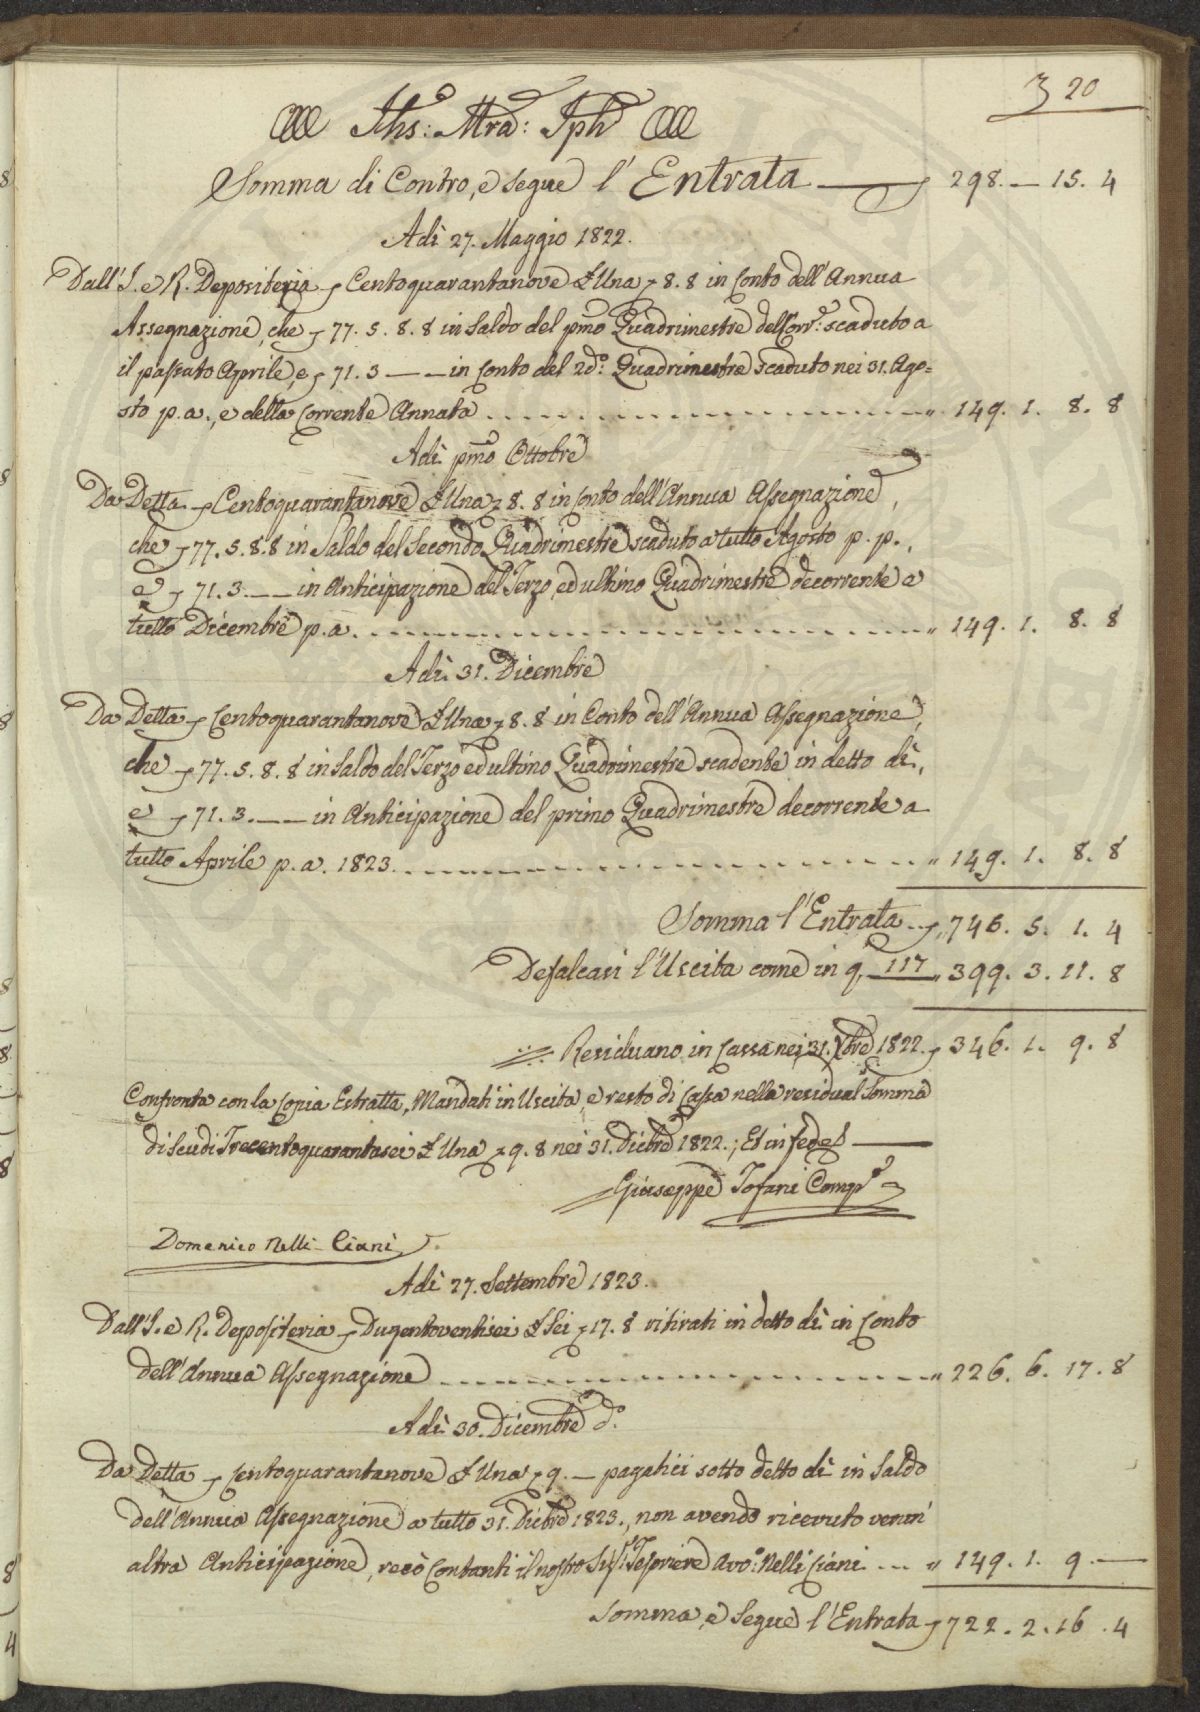 320
Jhs: Mra: Jph
Somma di Contro, e segue l'Entrata 298. — 15. 4
Adi 27. Maggio 1822.
Dall' I. e R. Depositeria Centoquarantanove £ Una 8. 8 in Conto dell'Annua
Assegnazione, che 77. 5. 8. 8 in Saldo del pmo Quadrimestre del Corr: scaduto a
il passato Aprile, e 71. 3 — — in Conto del 2do: Quadrimestre scaduto nei 31. Ago=
sto p. a., e della Corrente Annata " 149. 1. 8. 8
Adi pmo Ottobre
Da Detta Centoquarantanove £ Una 8. 8 in Conto dell'Annua Assegnazione,
che 77. 5. 8. 8 in Saldo del Secondo Quadrimestre scaduto a tutto Agosto p. p.,
e 71. 3. — — in Anticipazione del Terzo, ed ultimo Quadrimestre decorrente a
tutto Dicembre p. a. " 149. 1. 8. 8
Adi 31. Dicembre
Da Detta Centoquarantanove £ Una 8. 8 in Conto dell'Annua Assegnazione,
che 77. 5. 8. 8 in Saldo del Terzo ed ultimo Quadrimestre scadente in detto dì,
e 71. 3. — — in Anticipazione del primo Quadrimestre decorrente a
tutto Aprile p. a. 1823. " 149. 1. 8. 8
Somma l'Entrata 746. 5. 1. 4
Defalcasi l'Uscita come in 117 " 399. 3. 11. 8
Residuano in Cassa nei 31. Xbre 1822. 346. 1. 9. 8
Confronta con la Copia Estratta, Mandati in Uscita, e resto di Cassa nella residual Somma
di Scudi Trecentoquarantasei £ Una 9. 8 nei 31. Dicbre 1822.; Ed in fede
Giuseppe Tofani Compre
Domenico Nelli Ciani
Adi 27. Settembre 1823.
Dall' I. e R. Depositeria Dugentoventisei £ Sei 17. 8 ritirati in detto dì in Conto
dell'Annua Assegnazione " 226. 6. 17. 8
Adi 30. Dicembre do.
Da Detta Centoquarantanove £ Una 9. — pagatici sotto detto dì in Saldo
dell'Annua Assegnazione a tutto 31. Dicbre 1823., non avendo ricevuto verun'
altra Anticipazione, recò Contanti il nostro Sigr: Tesoriere Avo: Nelli Ciani " 149. 1. 9 —
Somma, e Segue l'Entrata 722. 2. 16. 4